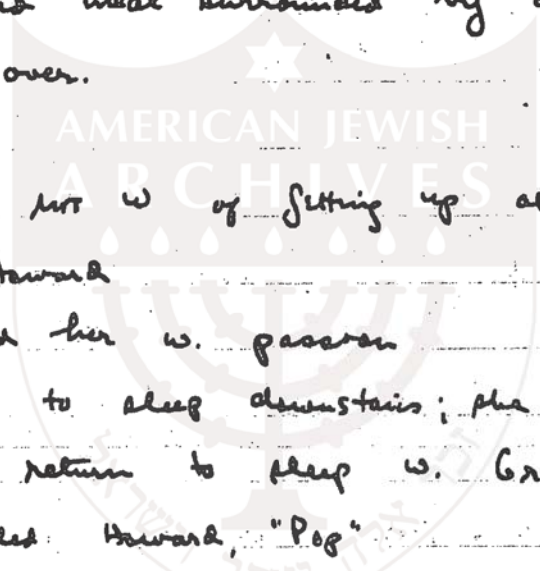 surrounded by
over.
AMERICAN JEWISH
ARCHIVES
not w of getting up
Howard
her w. passion
to sleep downstairs; she
return to sleep w. Gr
Howard, "Pop"